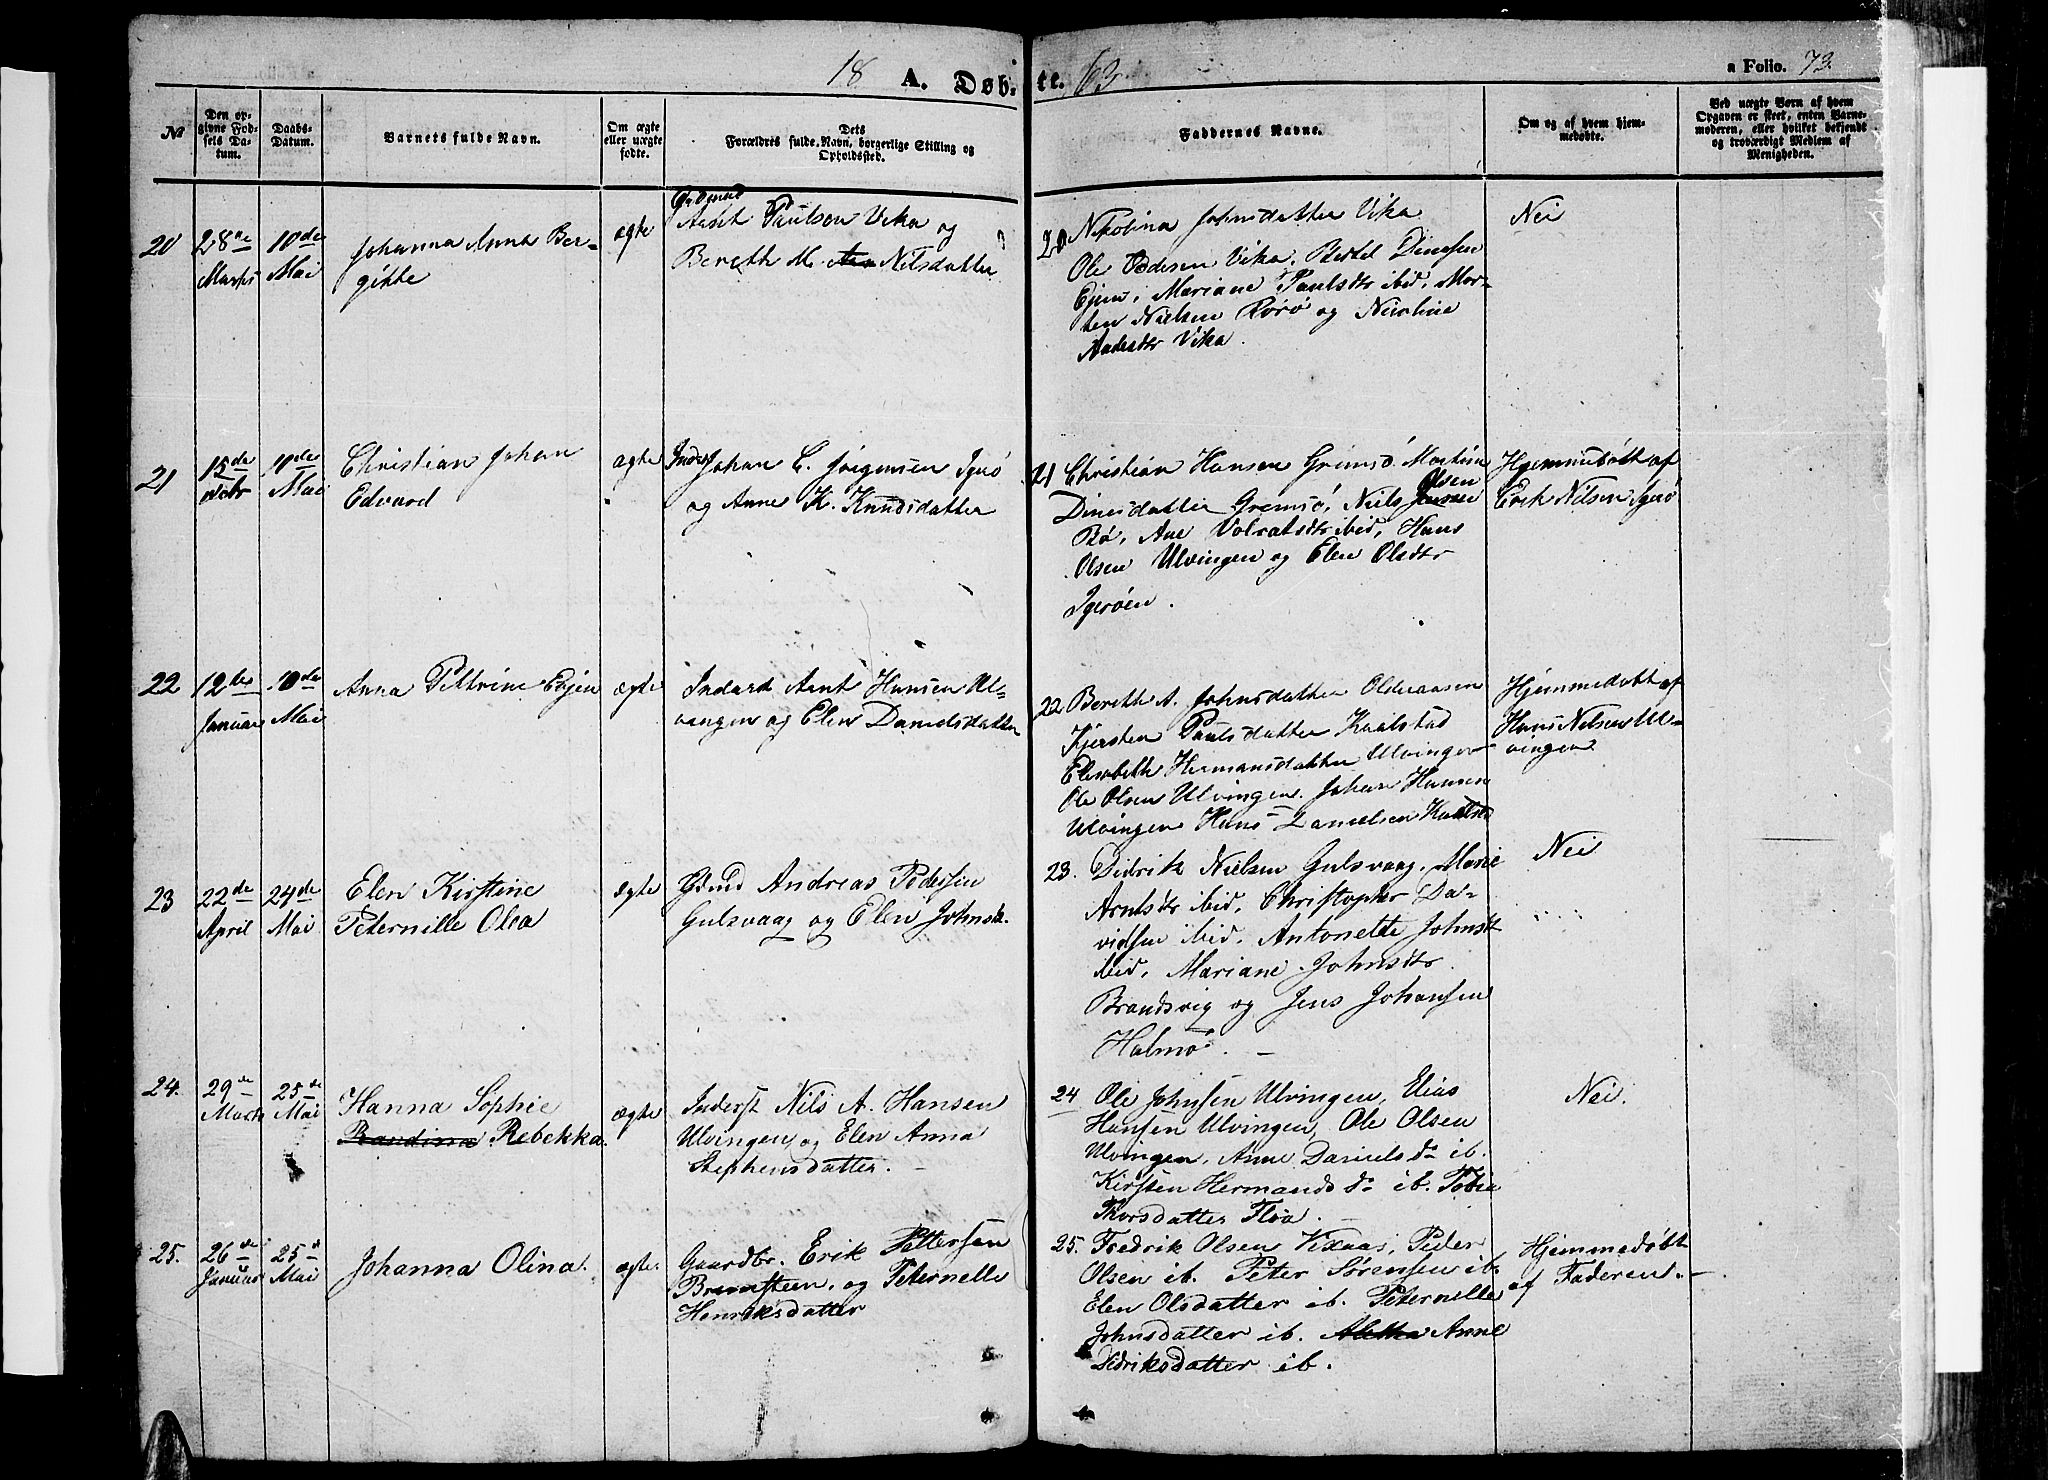 18 A. Døb- te. 63. a Folio. 73.
No
Den op-
givne Fød-
sels Da-
tum.
Daabs-
Datum.
Barnets fulde Navn.
Om ægte
eller uægte
fødte.
Dets
Forældres fulde Navn, borgerlige Stilling og
Opholdssted.
Faddernes Navne.
Om og af hvem hjem-
medøbte.
Ved uægte Børn af hvem
Opgaven er skeet, enten Barne-
moderen, eller hvilket bekjendt
og troværdigt Medlem af
Menigheden.
20
28de
Marts
10de
Mai
Johanna Anna Ber-
gitte
ægte
Grdmnd
Arnt Paulsen Vika og
Bereth M. Nilsdatter
20 Nikolina Johnsdatter Vika
Ole Pedersen Vika, Bertel Dinesen
Ejen, Mariane Paulsdtr ibid, Mor-
ten Nielsen Rørø og Nicoline
Andersdtr Vika.
Nei
21
15de
Febr
10de
Mai
Christian Johan
Edvard
ægte
Inders Johan C. Jørgensen Igerø
og Anne K. Knudsdatter
21 Christian Hansen Gremsø, Martine
Dinesdatter Gremsø, Niels Jensen Olsen
Rø, Ane Volratsdtr ibid, Hans
Olsen Ulvingen og Elen Olsdtr
Igerøen.
Hjemmedøbt af
Erik Nilsen Igerø
22
12te
Januar
10de
Mai
Anna Petrine Evjen
ægte
Inderst Arnt Hansen Ul-
vingen og Elen Danielsdatter
22 Bereth A. Johnsdatter Olderaasen
Kjersten Paulsdatter Kaalstad
Elesabeth Hermansdatter Ulvingen
Ole Olsen Ulvingen. Johan Hansen
Ulvingen Hans Danielsen Kaalsta
Hjemmedøbt af
Hans Nilsen Ul-
vingen
23
22de
April
24de
Mai
Elen Kirstine
Peternille Olea
ægte
Gdmd Andreas Pedersen
Gulsvaag og Elen Johnsdr.
23. Didrik Nielsen Gulsvaag, Marie
Arntsdtr ibid, Christopher Da-
vidsen ibid, Antonette Johnsdr
ibid, Mariane Johnsdtr
Brandsvig og Jens Johansen
Halmø. —
Nei
24.
29de
Marts
25de
Mai
Hanna Sophie
Baudina Rebekka.
ægte
Inderst Nils A. Hansen
Ulvingen og Elen Anna
Stephensdatter. —
24 Ole Johnsen Ulvingen, Elias
Hansen Ulvingen, Ole Olsen
Ulvingen, Anne Daniels da ib.
Kirsten Hermands da ib. Tobia
Thorsdatter Floa. —
Nei.
25.
26de
Januar
25de
Mai
Johanna Olina.
ægte.
Gaardbr. Erik Pettersen
Bremsteen, og Peternelle
Henriksdatter
25. Fredrik Olsen Vixaas, Peder
Olsen ib. Peter Sørensen ib.
Elen Olsdatter ib. Peternelle
Johnsdatter ib. Aletha Anne
Didriksdatter ib.
Hjemmedøbt
af Faderen. —